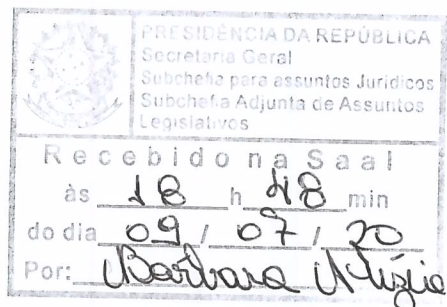 PRESIDÊNCIA DA REPÚBLICA
Secretaria Geral
Subchefia para assuntos Jurídicos
Subchefia Adjunta de Assuntos
Legislativos
Recebido na Saal
às 18 h 48 min
do dia 09 / 07 / 20
Por: Barbara